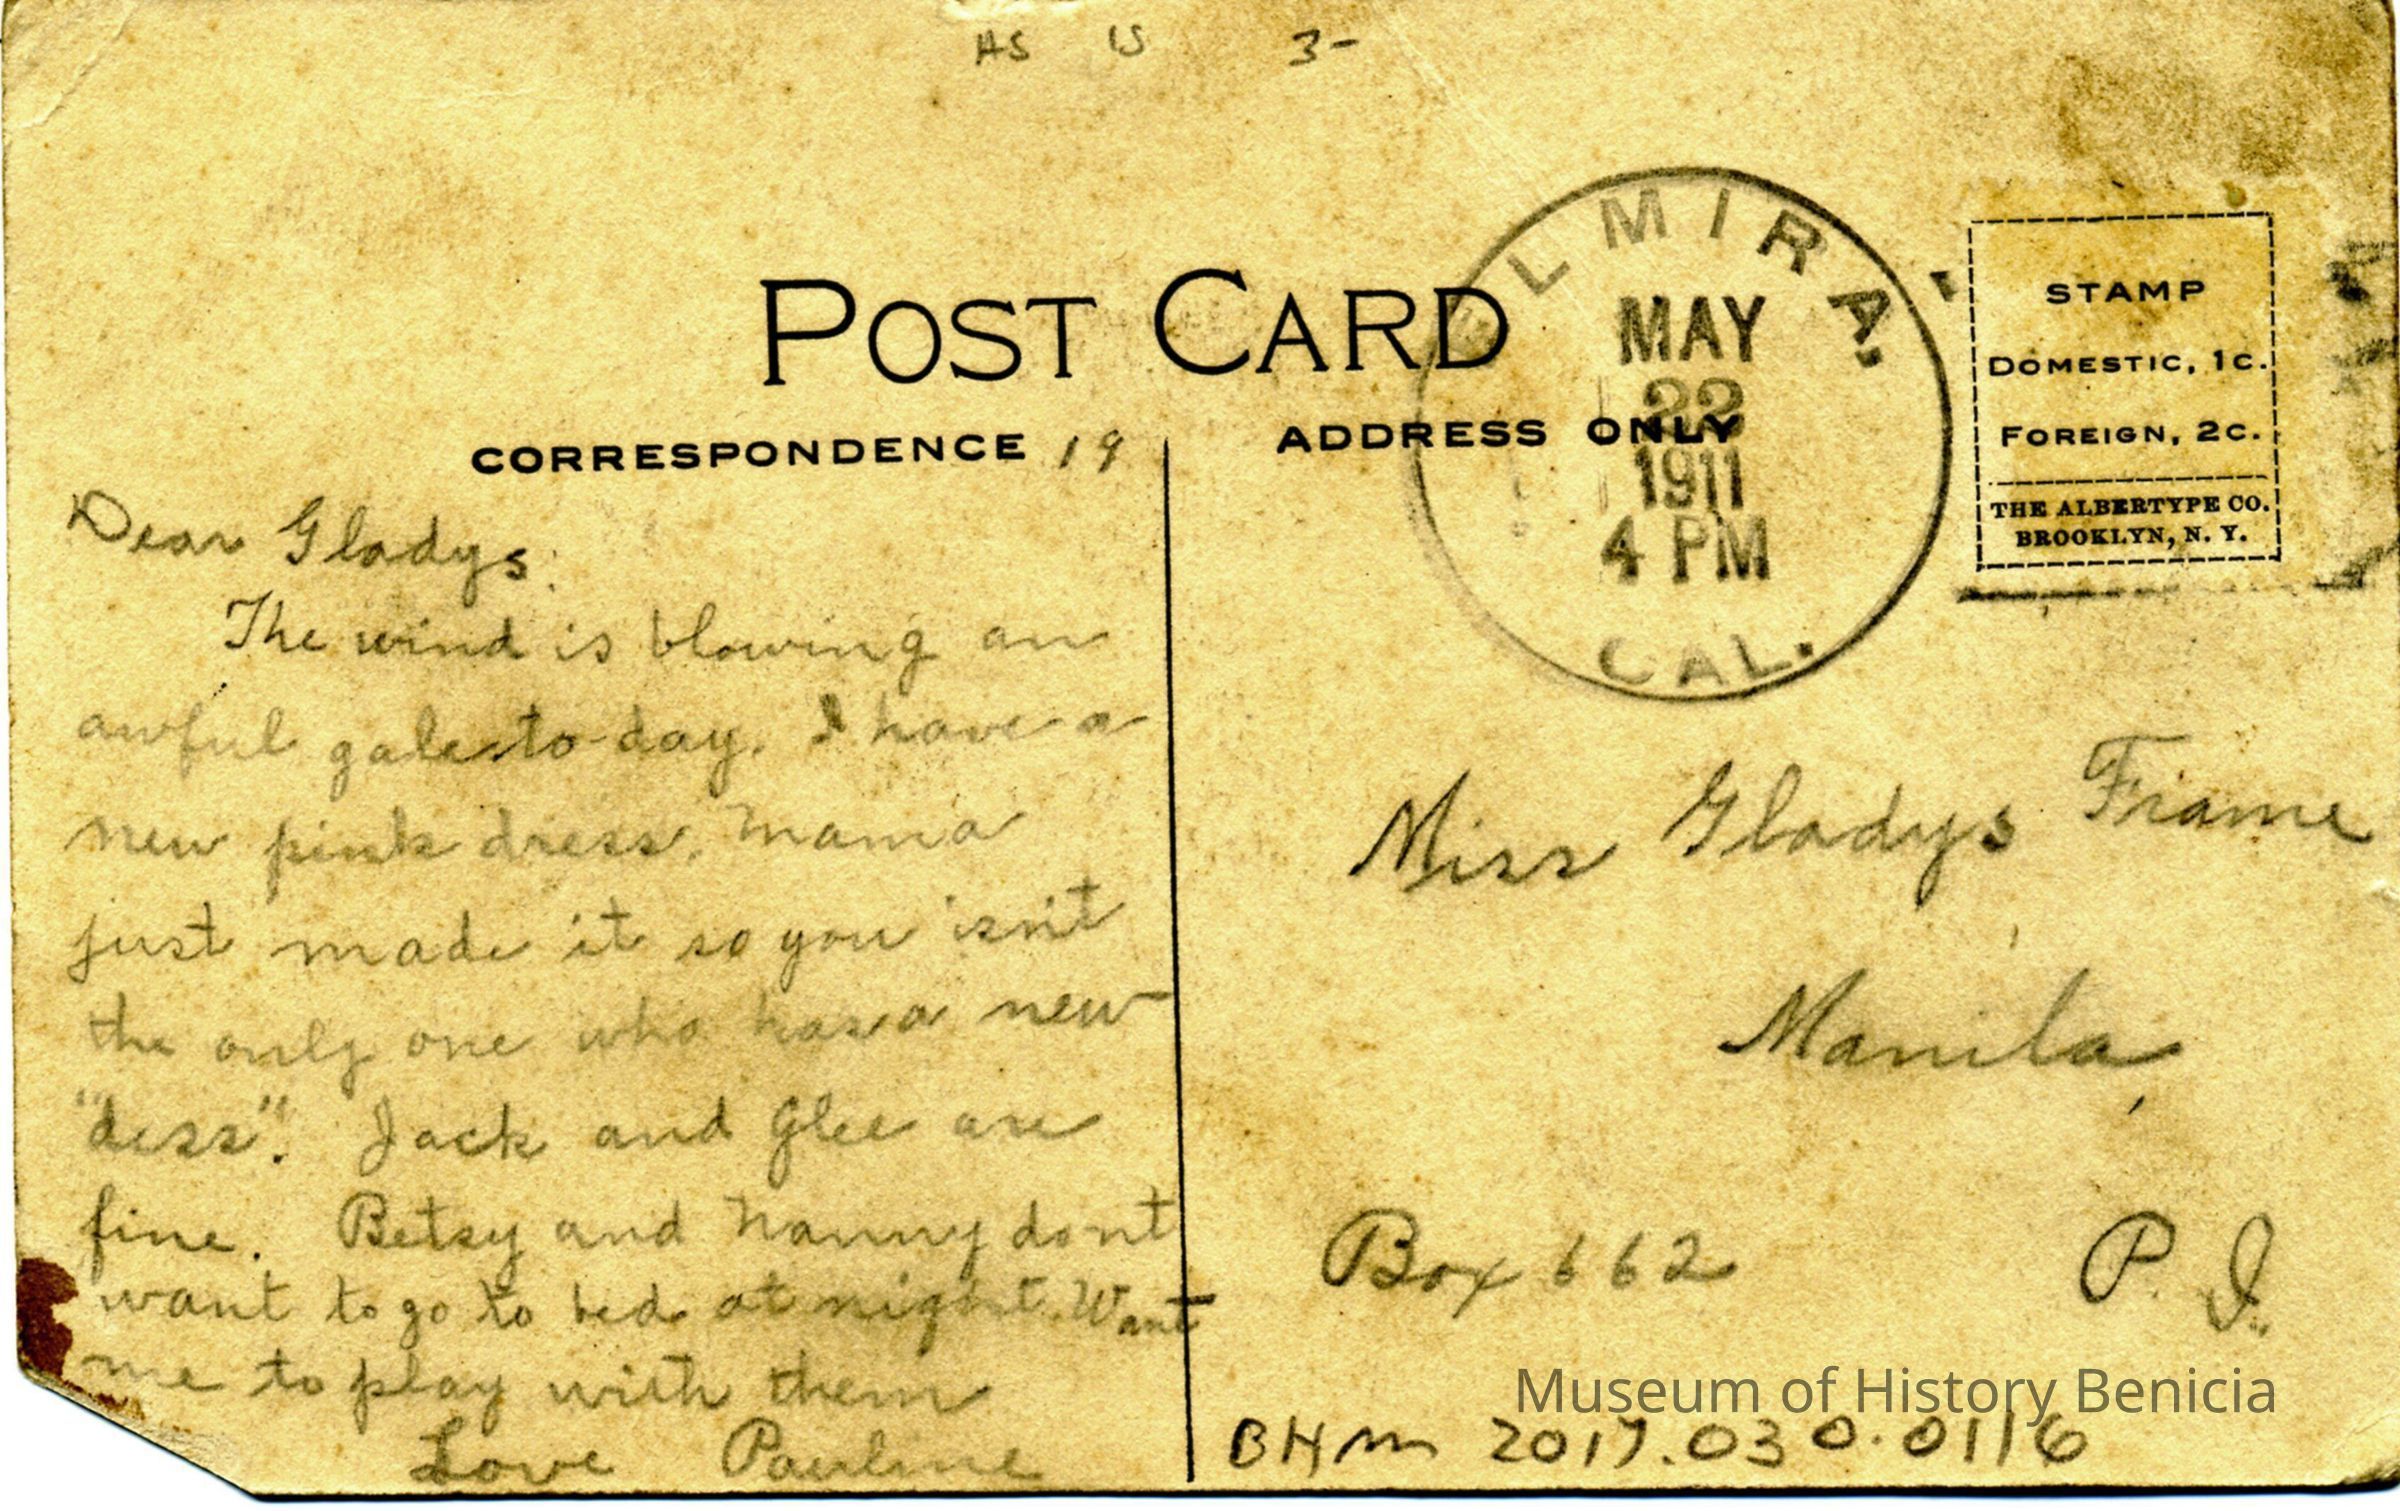 AS IS 3-
POST CARD
CORRESPONDENCE 19
ADDRESS ONLY
LMIRA,
MAY
22
1911
4 PM
CAL.
STAMP
DOMESTIC, 1c.
FOREIGN, 2c.
THE ALBERTYPE CO.
BROOKLYN, N. Y.
Dear Gladys:
The wind is blowing an
awful gale to-day. I have a
new pink dress. Mama
just made it so you isn't
the only one who has a new
"dess". Jack and Glee are
fine. Betsy and Nanny dont
want to go to bed at night. Want
me to play with them
Love Pauline
Miss Gladys Frame
Manila,
Box 662 P. I.
Museum of History Benicia
BHM 2017.030.0116